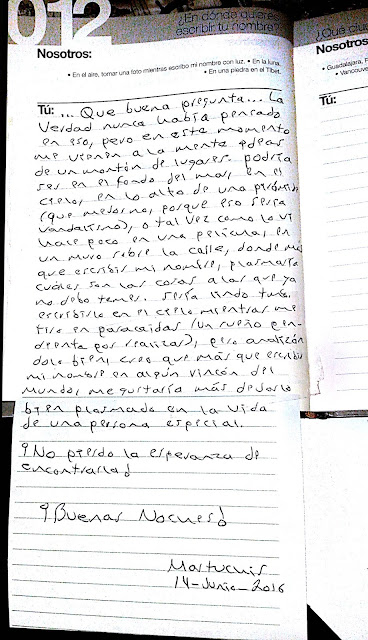 012
¿En dónde quieres
escribir tu nombre?
Nosotros:
• En el aire, tomar una foto mientras escribo mi nombre con luz. • En la luna.
• En una piedra en el Tíbet.
Tú: ... Que buena pregunta... La
verdad nunca había pensado
en eso, pero en este momento
me vienen a la mente ideas
de un montón de lugares. podría
ser en el fondo del mar, en el
cielo, en lo alto de una pirámide
(que mejor no, porque eso sería
vandalismo), o tal vez como lo vi
hace poco en una película, en
un muro sobre la calle, donde más
que escribir mi nombre, plasmaría
cuáles son las cosas a las que ya
no debo temer. Sería lindo
escribirlo en el cielo mientras me
tiro en paracaídas (un sueño pen-
diente por realizar), pero analizán
dolo bien, creo que más que escribir
mi nombre en algún rincón del
mundo, me gustaría más dejarlo
bien plasmado en la vida
de una persona especial.
¡No pierdo la esperanza de
encontrarla!
¡Buenas Noches!
Martuchis
14-Junio-2016
¿Qué
Nosotros
• Guadalajara,
• Vancouve
Tú: